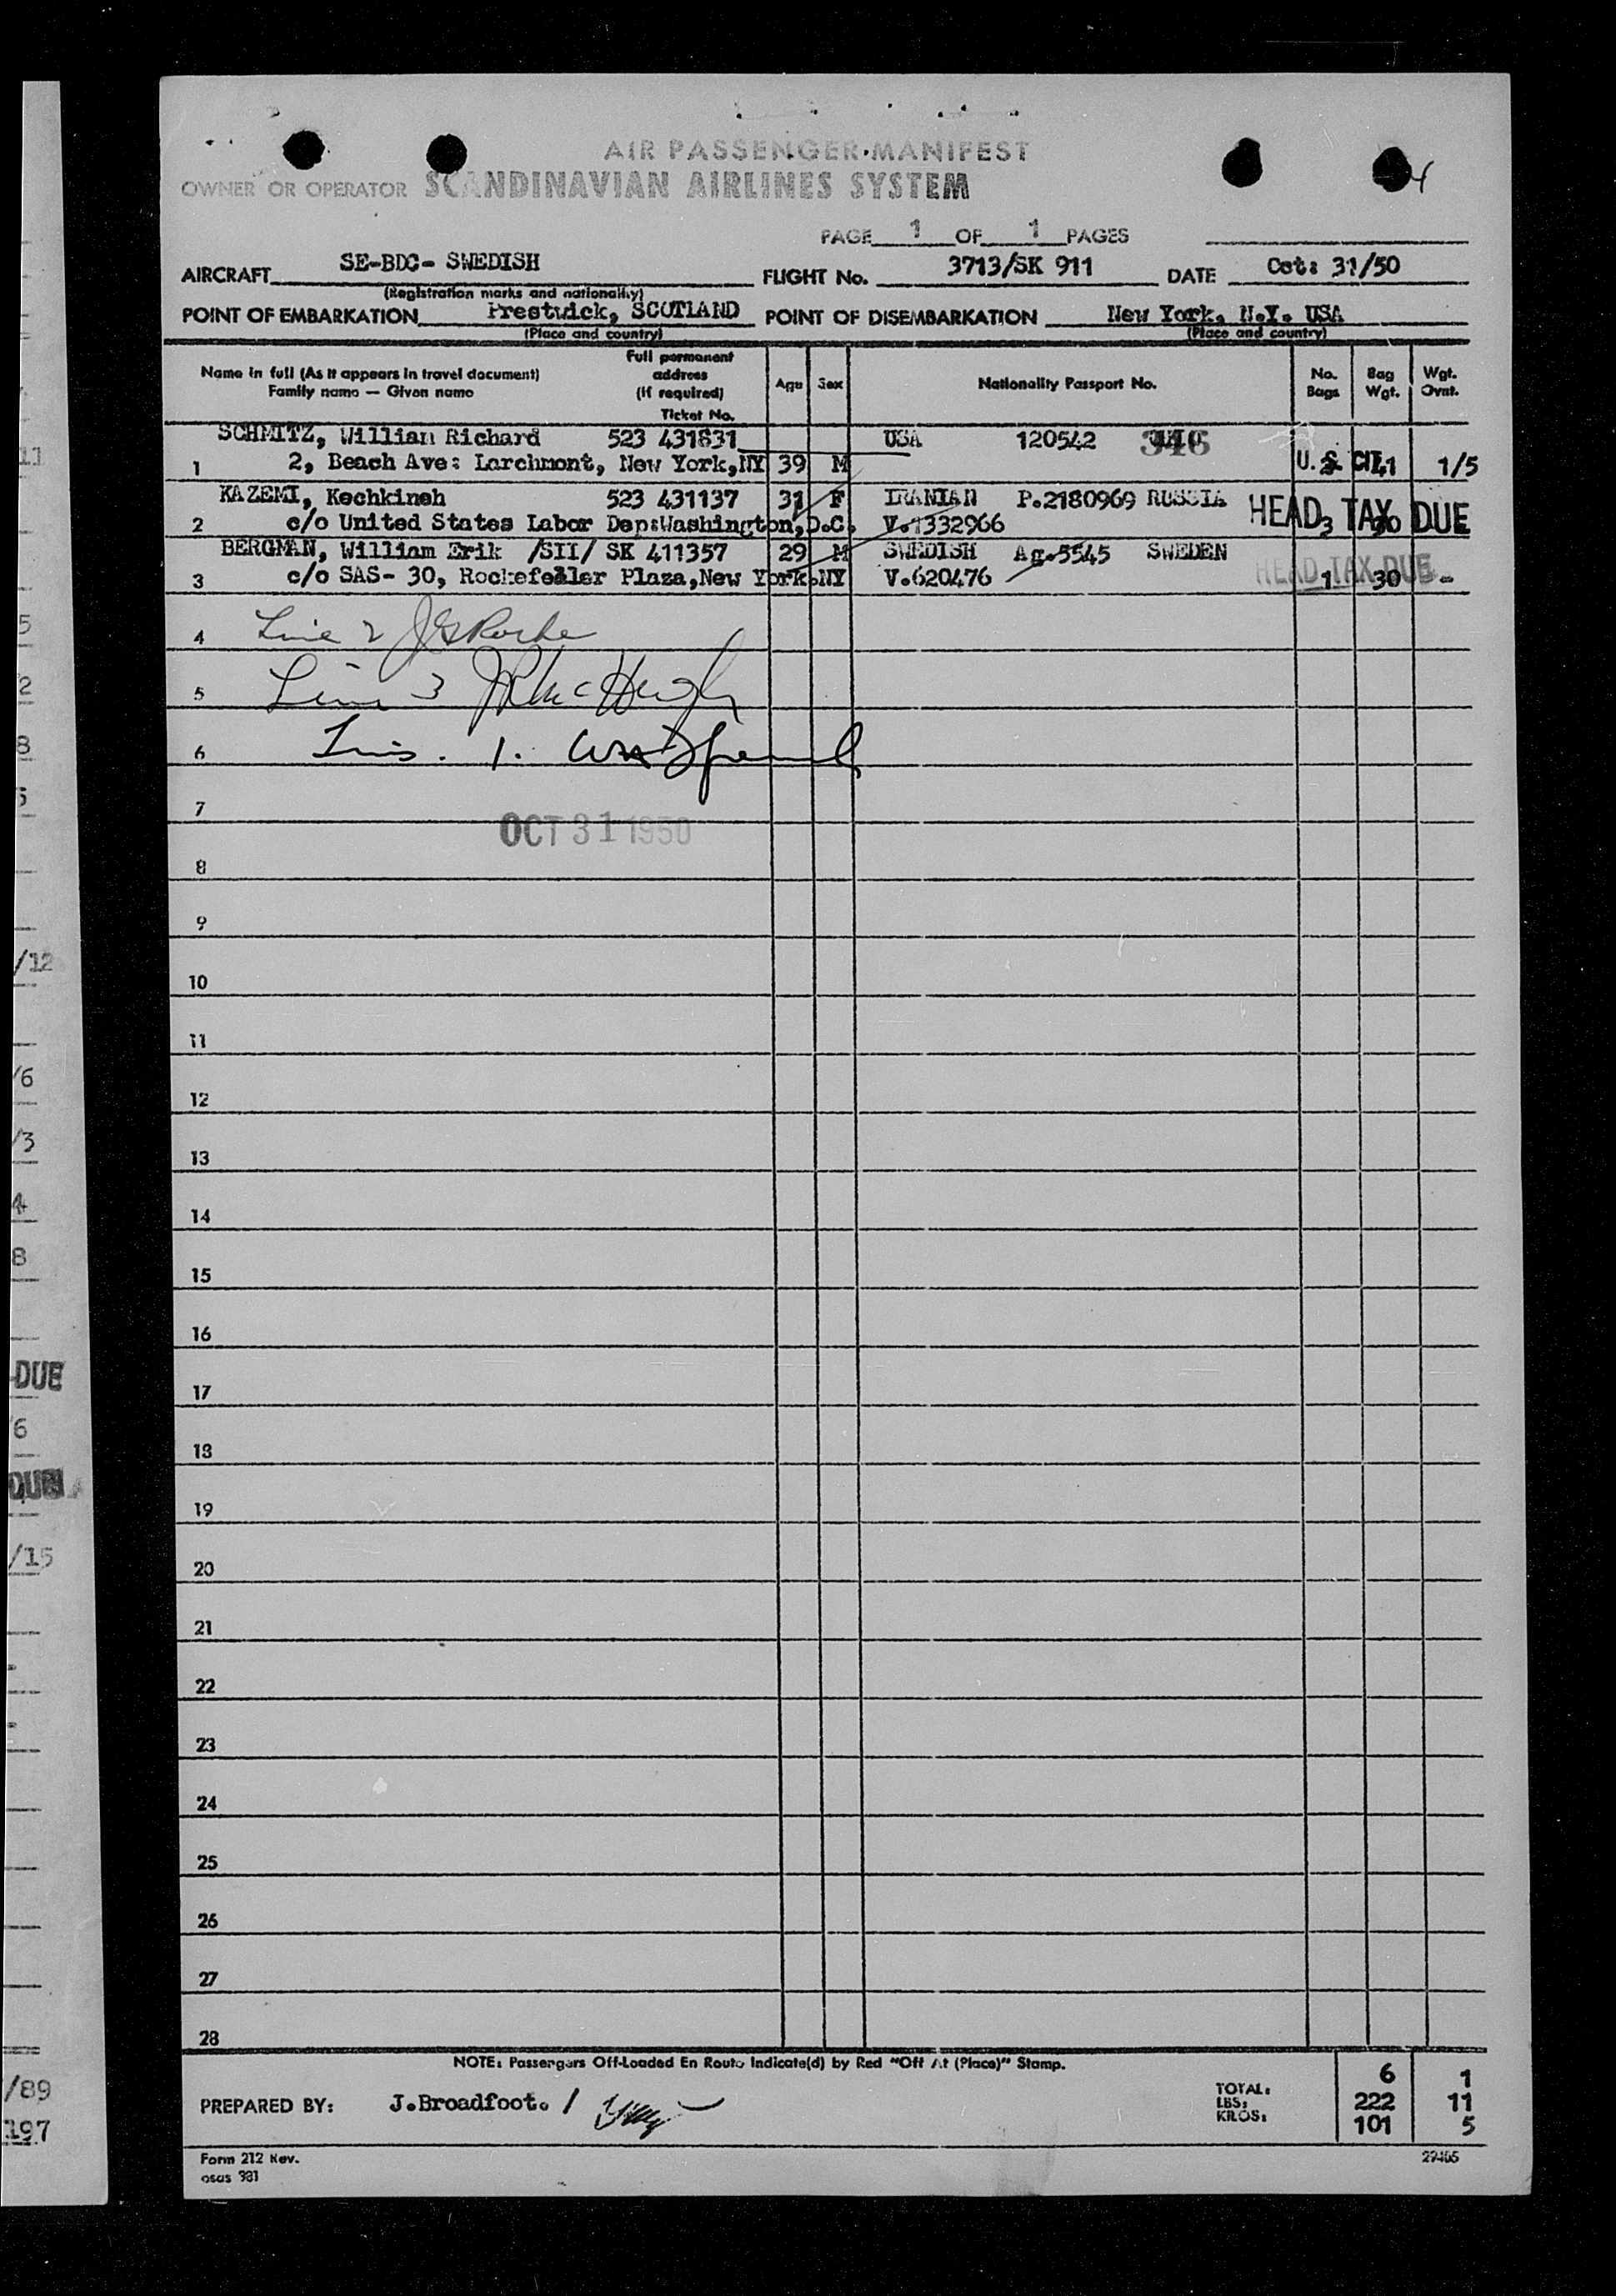 4
AIR PASSENGER MANIFEST
OWNER OR OPERATOR SCANDINAVIAN AIRLINES SYSTEM
PAGE 1 OF 1 PAGES
AIRCRAFT SE-BDC- SWEDISH FLIGHT No. 3713/SK 911 DATE Oct: 31/50
(Registration marks and nationality)
POINT OF EMBARKATION Prestwick, SCOTLAND POINT OF DISEMBARKATION New York, N.Y. USA
(Place and country) (Place and country)
Name in full (As it appears in travel document) Family name — Given name Full permanent address (if required) Ticket No. Age Sex Nationality Passport No. No. Bags Bag Wgt. Wgt. Ovnt.
SCHMITZ, William Richard 523 431831 USA 120542
1 2, Beach Ave: Larchmont, New York,NY 39 M U.S. CIT. 41 1/5
KAZEMI, Kechkineh 523 431137 31 F IRANIAN P.2180969 RUSSIA HEAD TAX DUE
2 c/o United States Labor Dep:Washington,D.C. V.1332966 3
BERGMAN, William Erik /SII/ SK 411357 29 M SWEDISH Ag.5545 SWEDEN HEAD TAX DUE
3 c/o SAS- 30, Rockefeller Plaza,New York.NY V.620476 1 30 -
4 Line 2
5 Line 3 McHugh
6 1.
7
OCT 31 1950
8
9
10
11
12
13
14
15
16
17
18
19
20
21
22
23
24
25
26
27
28
NOTE: Passengers Off-Loaded En Route Indicate(d) by Red "Off At (Place)" Stamp.
PREPARED BY: J.Broadfoot. /
TOTAL: 6 1
LBS: 222 11
KILOS: 101 5
Form 212 Rev.
osas 381
11
5
2
8
5
/12
/6
/3
4
8
DUE
6
DUE
/15
/89
197